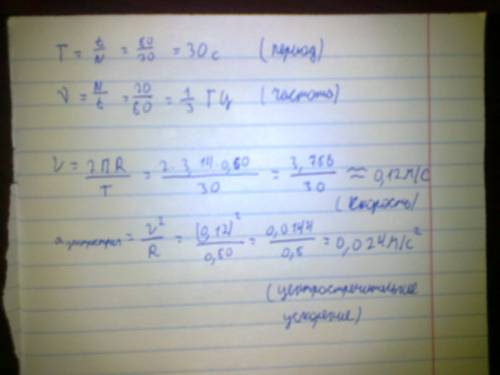 T = t/N = 60/20 = 30 с (период)
ν = N/t = 20/60 = 1/3 Гц (частота)
V = 2ПR/T = 2·3,14·0,60/30 = 3,756/30 ≈ 0,12 м/с
(скорость)
a = V²/R = (0,12)²/0,60 = 0,0144/0,6 = 0,024 м/с²
(центростремительное
ускорение)